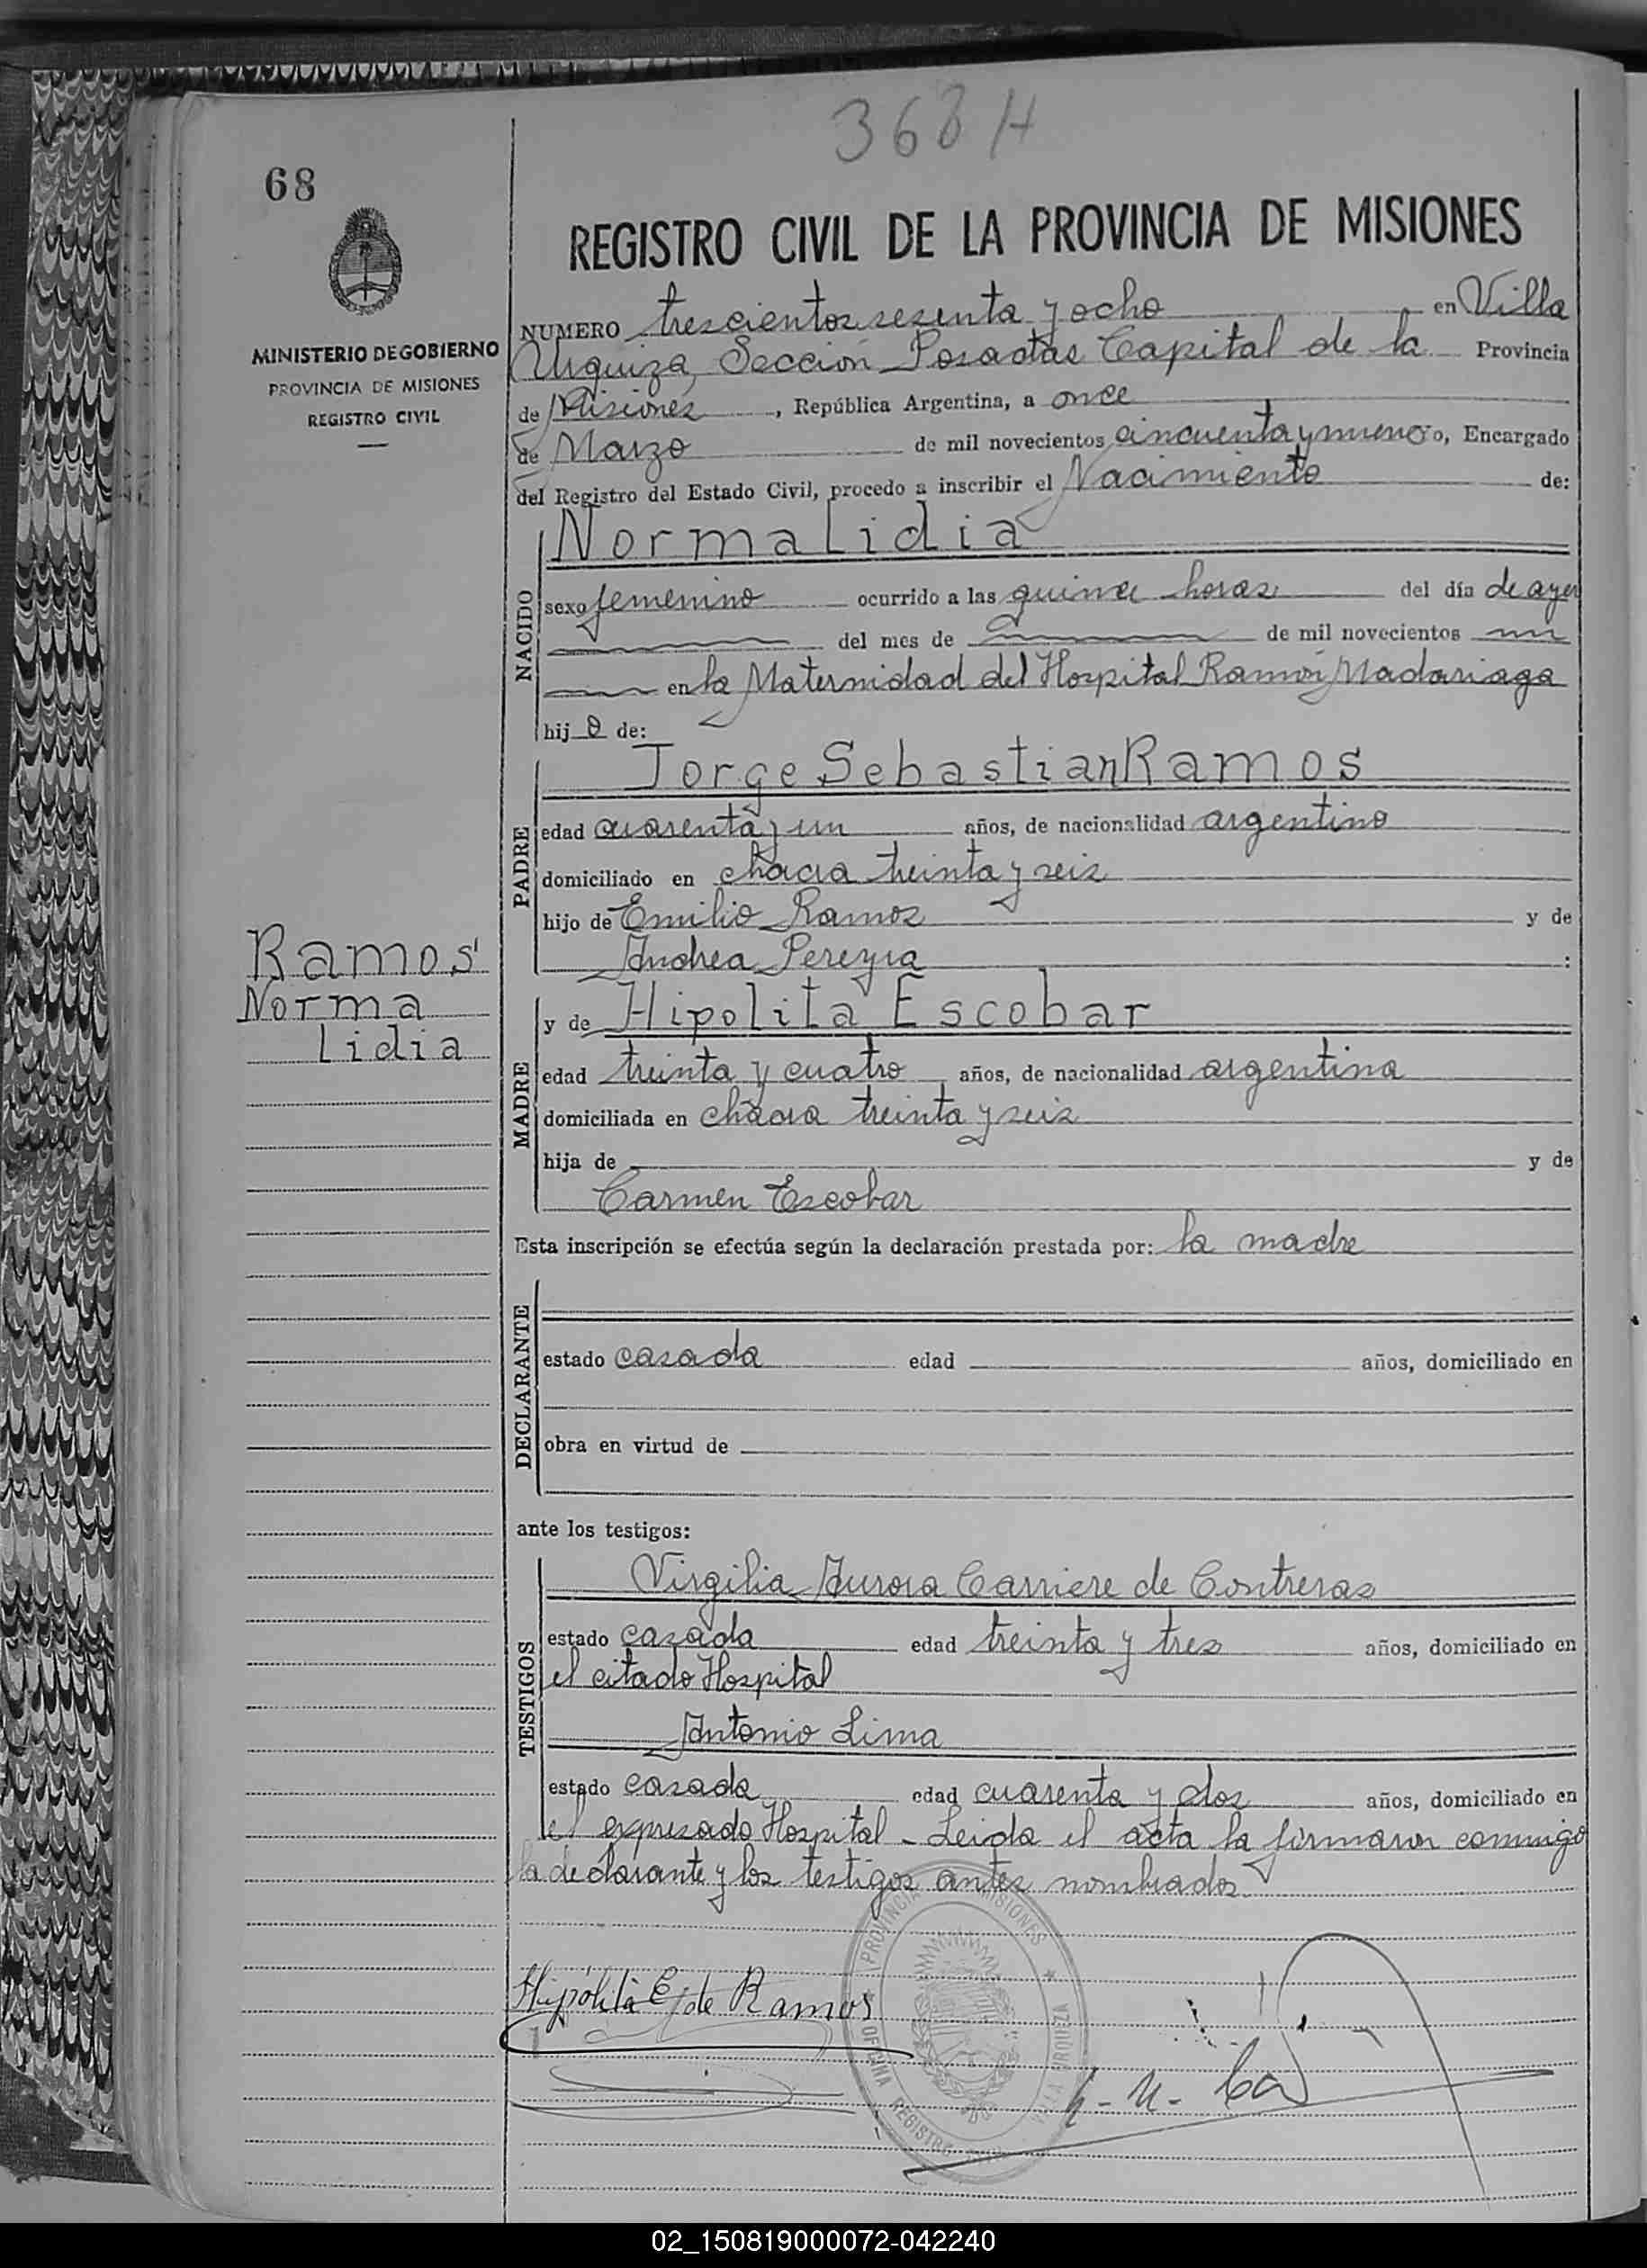 368 H
68
REGISTRO CIVIL DE LA PROVINCIA DE MISIONES
MINISTERIO DE GOBIERNO
PROVINCIA DE MISIONES
REGISTRO CIVIL
NUMERO trescientos sesenta y ocho en Villa
Urquiza, Sección Posadas Capital de la Provincia
de Misiones, República Argentina, a once
de Marzo de mil novecientos cincuenta y nueve yo, Encargado
del Registro del Estado Civil, procedo a inscribir el Nacimiento de:
NACIDO
Norma Lidia
sexo femenino ocurrido a las quince horas del día de ayer
del mes de de mil novecientos
en la Maternidad del Hospital Ramón Madariaga
hij a de:
PADRE
Jorge Sebastian Ramos
edad cuarenta y un años, de nacionalidad argentino
domiciliado en chacra treinta y seis
hijo de Emilio Ramos y de
Andrea Pereyra :
Ramos
Norma
Lidia
MADRE
y de Hipolita Escobar
edad treinta y cuatro años, de nacionalidad argentina
domiciliada en chacra treinta y seis
hija de y de
Carmen Escobar
Esta inscripción se efectúa según la declaración prestada por: la madre
DECLARANTE
estado casada edad años, domiciliado en
obra en virtud de
ante los testigos:
TESTIGOS
Virgilia Aurora Carriere de Contreras
estado casada edad treinta y tres años, domiciliado en
el citado Hospital
Antonio Lima
estado casada edad cuarenta y dos años, domiciliado en
el expresado Hospital - Leida el acta la firmaron conmigo
la declarante y los testigos antes nombrados.
Hipólita E. de Ramos
PROVINCIA MISIONES
OFICINA REGISTRO
VILLA URQUIZA
02_150819000072-042240